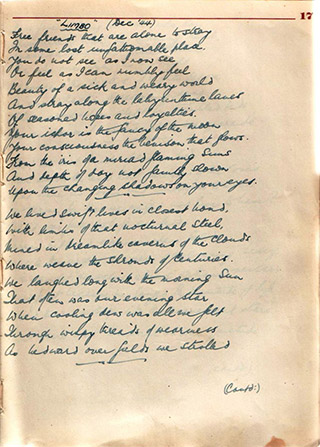 "LIMBO" (Dec '44)
17
Free friends that are alone to stray
In some lost unfathomable place.
You do not see as I now see
Or feel as I can numbly feel
Beauty of a sick and weary world
And stray along the labyrinthine lanes
Of seasoned hopes and loyalties.
Your ichor is the fancy of the moon
Your consciousness the venison that flows.
From the iris of a myriad flaming Suns
And depth of day not faintly shown
Upon the changing shadows on your eyes.
We lived swift lives in closest bond,
With smiles of that nocturnal steel,
in dreamlike caverns of the clouds
Where weave the shrouds of centuries.
We laughed long with the morning Sun
That often was our evening star
When cooling dew was felt
Through wispy threads of weariness
As bedward over fields we strolled
(Contd:)